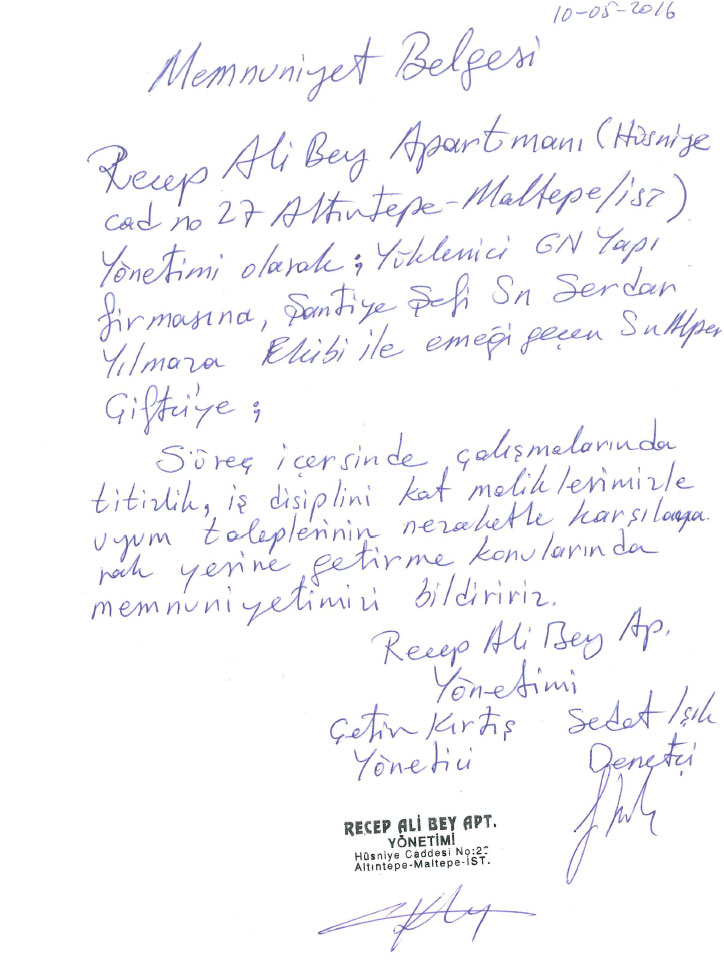 10-05-2016
Memnuniyet Belgesi
Recep Ali Bey Apartmanı (Hüsniye
cad no 27 Altıntepe-Maltepe/ist)
Yönetimi olarak; Yüklenici GN Yapı
firmasına, Şantiye Şefi Sn Serdar
Yılmaza Ekibi ile emeği geçen Sn Alper
Çiftçi'ye ;
Süreç içersinde çalışmalarında
titizlik, iş disiplini kat maliklerimizle
uyum taleplerinin nezaketle karşılaya
rak yerine getirme konularında
memnuniyetimizi bildiririz.
Recep Ali Bey Ap.
Yönetimi
Çetin Kırtış Sedat Işık
Yönetici Denetçi
RECEP ALİ BEY APT.
YÖNETİMİ
Hüsniye Caddesi No:27
Altıntepe-Maltepe-İST.